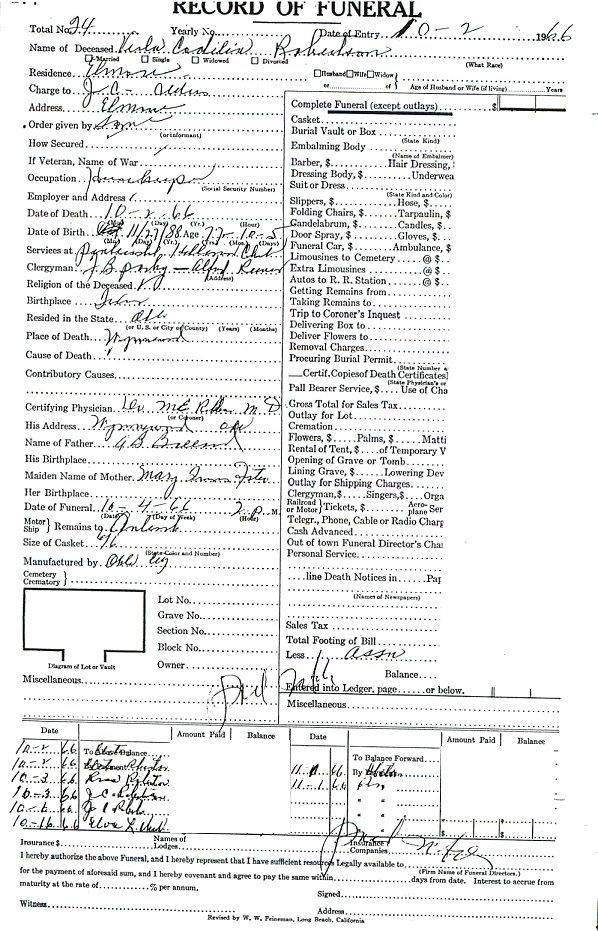 RECORD OF FUNERAL
Total No. 24 Yearly No. Date of Entry 10-2 1966
Name of Deceased Cecilia Robertson
Married Single Widowed Divorced (What Race)
Residence Elmore Husband Wife Widow
or of Age of Husband or Wife (if living) Years
Charge to J.C.
Address Elmore
Order given by Same
(or informant)
How Secured
If Veteran, Name of War
Occupation Housekeeper
(Social Security Number)
Employer and Address
Date of Death 10-2-66
(Mo.) (Day) (Yr.) (Hour)
Date of Birth 11/27/88 Age 77-10-5
(Mo) (Day) (Yr.) (Yrs.) (Mos.) (Days)
Services at Pentecostal Holiness Church
Clergyman J.B. - Alfred
(Address)
Religion of the Deceased
Birthplace
Resided in the State Okla
(or U. S. or City or County) (Years) (Months)
Place of Death Wynnewood
Cause of Death
Contributory Causes
Certifying Physician Dr. M.E. M.D.
(or Coroner)
His Address Wynnewood Okl
Name of Father
His Birthplace
Maiden Name of Mother Mary
Her Birthplace
Date of Funeral 10-4-66 2 P. M.
(Date) (Day of Week) (Hour)
Motor Ship } Remains to
Size of Casket 6/6
(State Color and Number)
Manufactured by Okla
Cemetery Crematory }
Lot No.
Grave No.
Section No.
Block No.
Owner
Diagram of Lot or Vault
Miscellaneous
Complete Funeral (except outlays) $
Casket
Burial Vault or Box
(State Kind)
Embalming Body
(Name of Embalmer)
Barber, $ Hair Dressing,
Dressing Body, $ Underwea
Suit or Dress
(State Kind and Color)
Slippers, $ Hose, $
Folding Chairs, $ Tarpaulin, $
Candelabrum, $ Candles, $
Door Spray, $ Gloves, $
Funeral Car, $ Ambulance, $
Limousines to Cemetery @ $
Extra Limousines @ $
Autos to R. R. Station @ $
Getting Remains from
Taking Remains to
Trip to Coroner's Inquest
Delivering Box to
Deliver Flowers to
Removal Charges
Procuring Burial Permit
(State Number a
Certif. Copies of Death Certificates
(State Physician's or
Pall Bearer Service, $ Use of Cha
Gross Total for Sales Tax
Outlay for Lot
Cremation
Flowers, $ Palms, $ Matti
Rental of Tent, $ of Temporary V
Opening of Grave or Tomb
Lining Grave, $ Lowering Dev
Outlay for Shipping Charges
Clergyman, $ Singers, $ Orga
Railroad or Motor } Tickets, $ Aero-plane Ser
Telegr., Phone, Cable or Radio Charg
Cash Advanced
Out of town Funeral Director's Cha
Personal Service
line Death Notices in Pap
(Names of Newspapers)
Sales Tax
Total Footing of Bill
Less Assn
Balance
Entered into Ledger, page or below.
Miscellaneous
Date Amount Paid Balance Date Amount Paid Balance
To Balance Forward
10-2 66 To Balance
10-2 66
10-3 66
10-3 66 J C Robertson
66
10-16 66
11 66 By
11-1 66
Insurance $ Names of Lodges Insurance Companies
I hereby authorize the above Funeral, and I hereby represent that I have sufficient resources Legally available to
(Firm Name of Funeral Directors.)
for the payment of aforesaid sum, and I hereby covenant and agree to pay the same within days from date. Interest to accrue from
maturity at the rate of % per annum.
Signed
Witness Address
Revised by W. W. Feineman, Long Beach, California